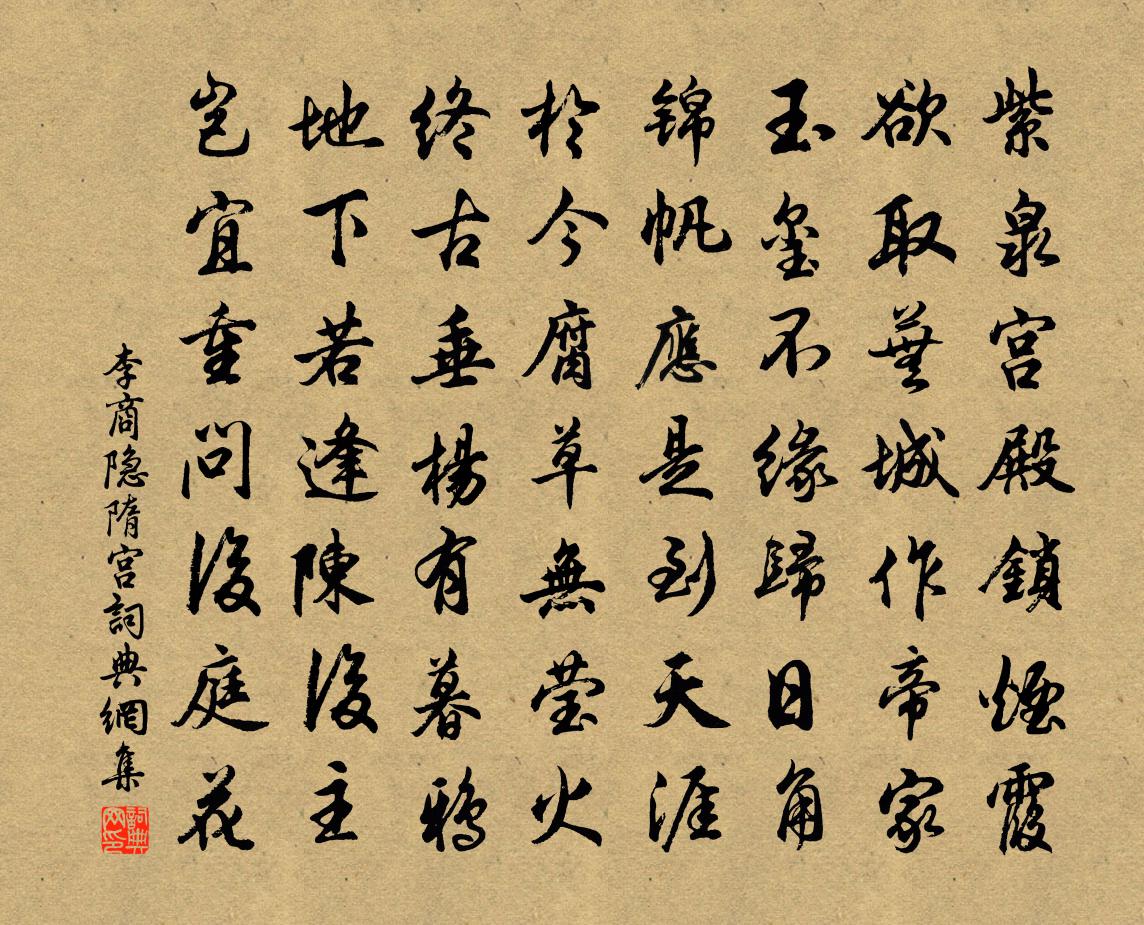 紫泉宫殿鎖煙霞
欲取蕪城作帝家
玉璽不緣歸日角
锦帆應是到天涯
於今腐草無莹火
終古垂楊有暮鴉
地下若逢陳後主
岂宜重問後庭花
李商隐隋宫詞典網集
詞典网印